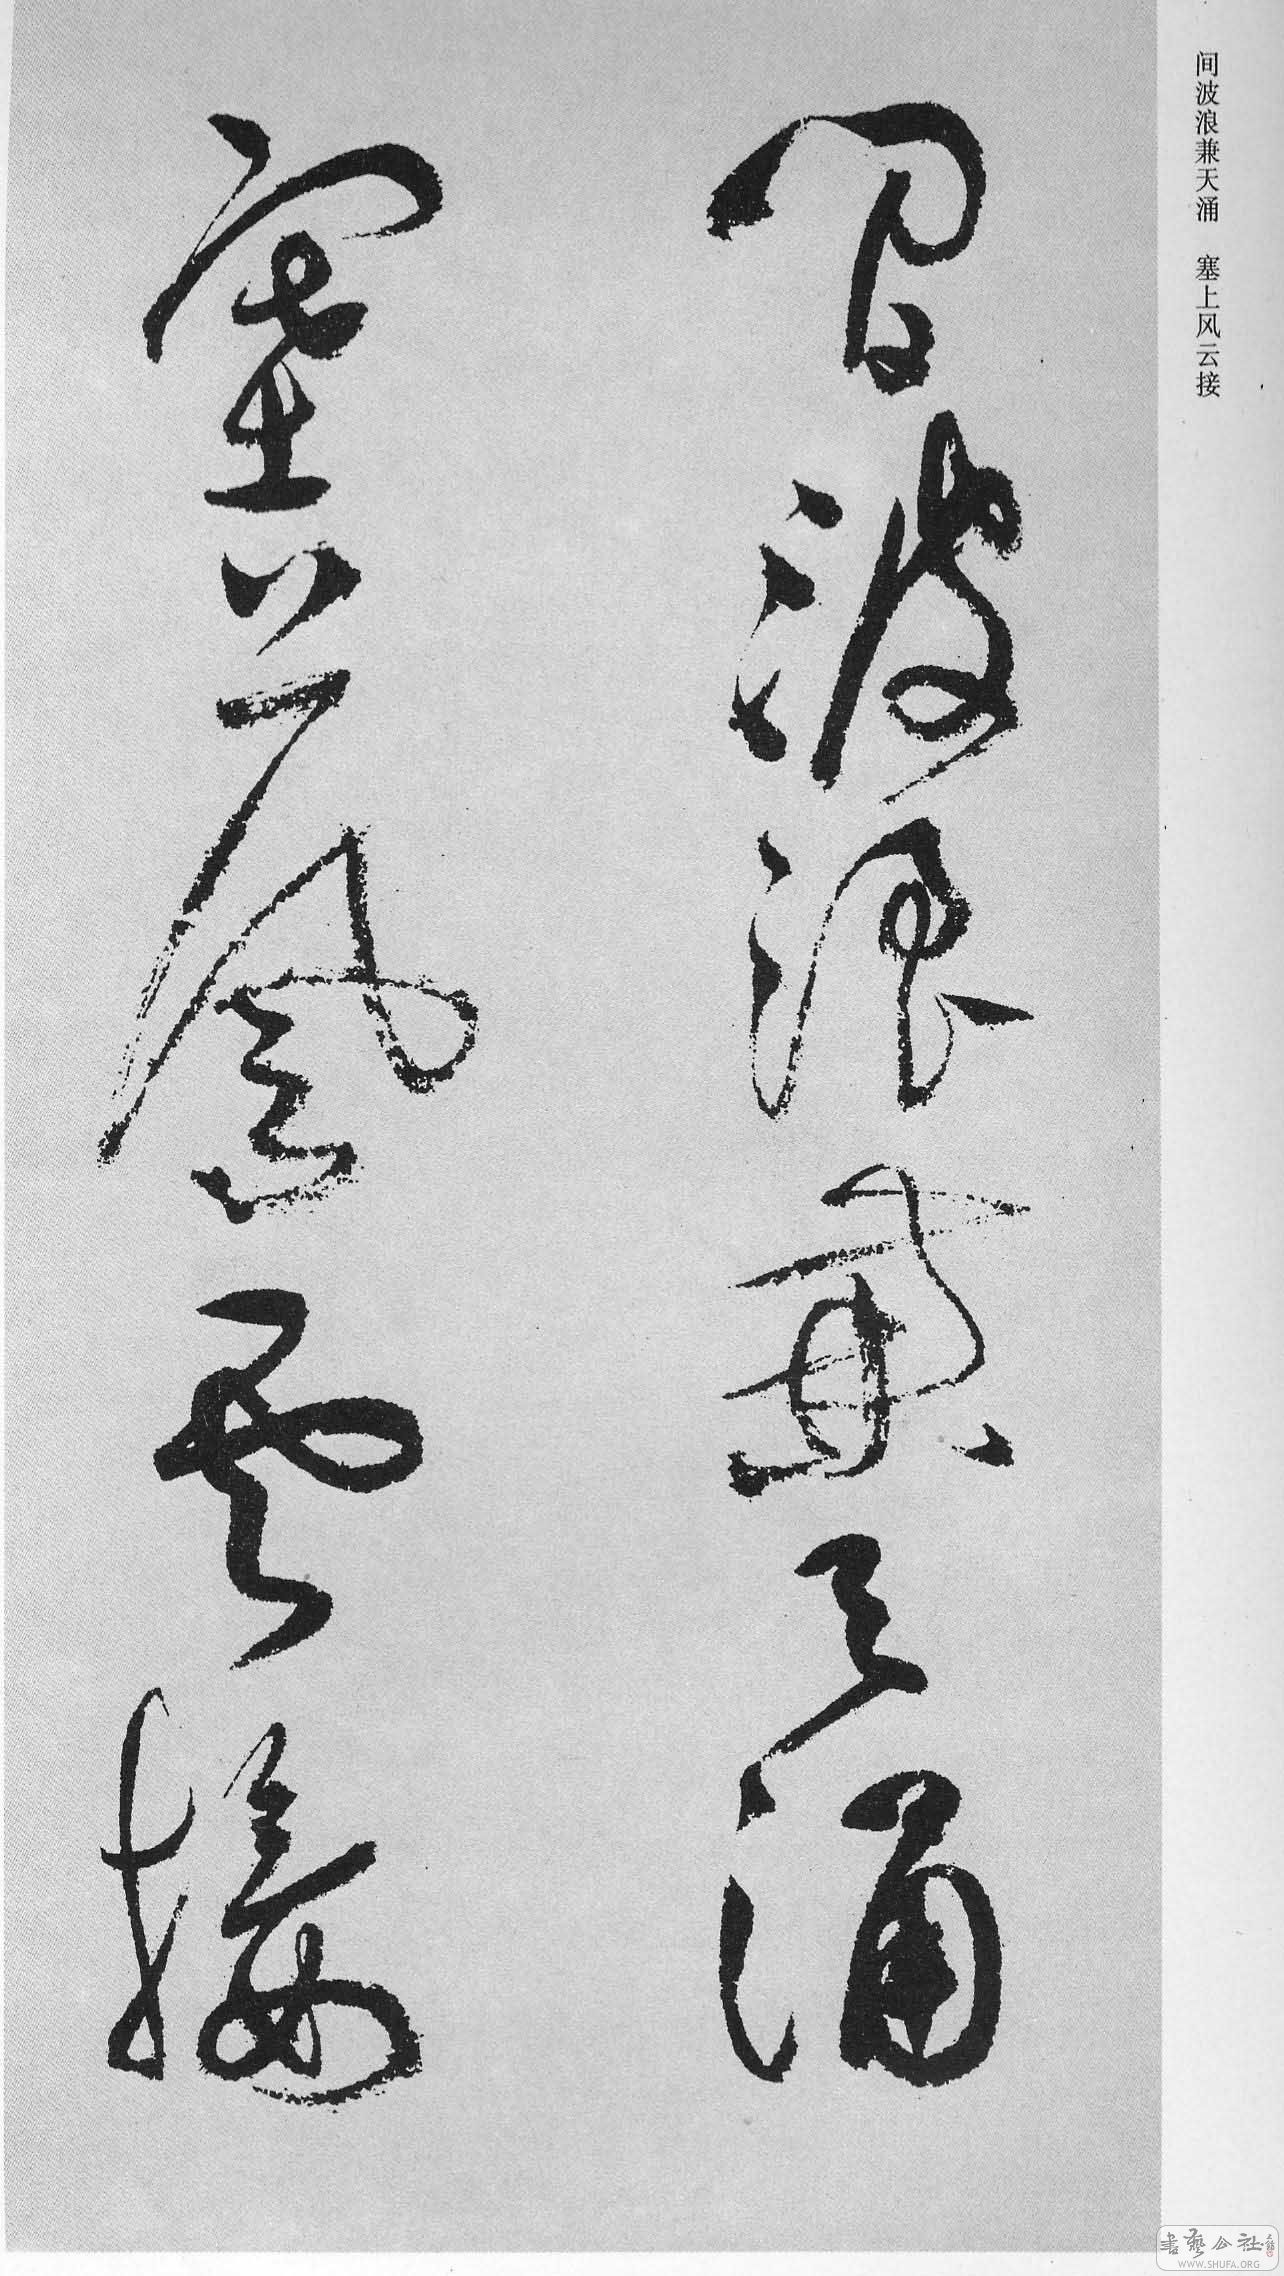 间波浪兼天涌 塞上风云接
間波浪兼天涌
塞上風雲接
書藝公社
WWW.SHUFA.ORG